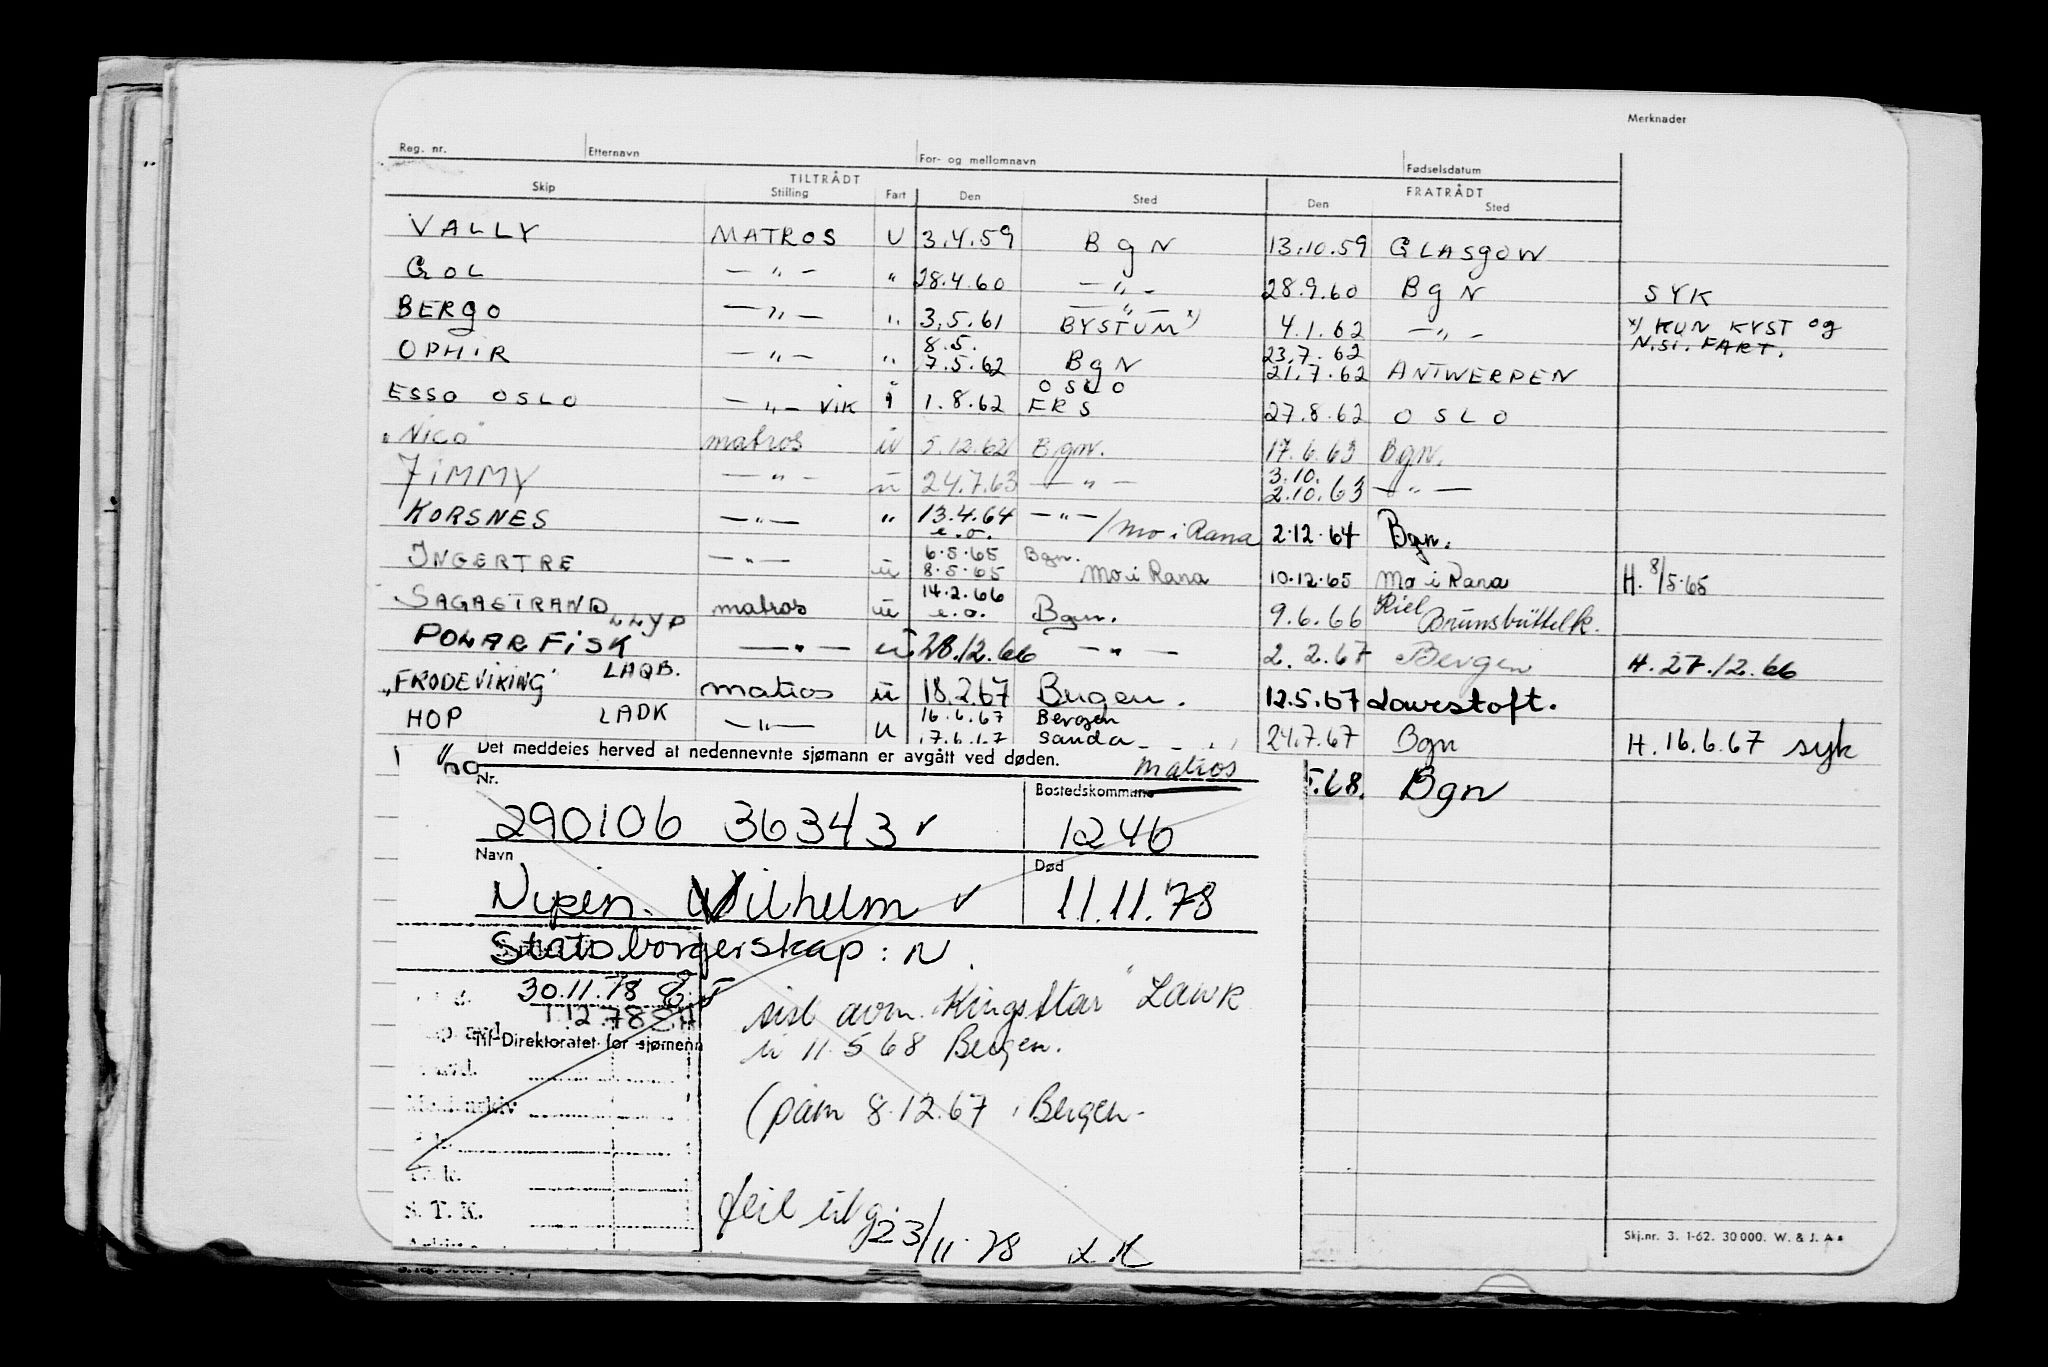 Merknader
Reg. nr. Etternavn For- og mellomnavn Fødselsdatum
TILTRÅDT FRATRÅDT
Skip Stilling Fart Den Sted Den Sted
VALLY MATROS U 3.4.59 BgN 13.10.59 GLASgOW
GOL — " — " 28.4.60 — " — 28.9.60 BgN SYK
BERgO — " — " 3.5.61 BYSTUM x) 4.1.62 — " — x) KUN KYST og
N.Si. FART.
8.5. 23.7.62
OPHIR — " — " 7.5.62 BgN 21.7.62 ANTWERPEN
OSLO
ESSO OSLO — " — VIK " 1.8.62 FRS 27.8.62 OSLO
"Nico" matros u 5.12.62 Bgn. 17.6.63 Bgn.
3.10.
JIMMY — " — u 24.7.63 — " — 2.10.63 — " —
KORSNES — " — " 13.4.64 — " — / Mo i Rana 2.12.64 Bgn.
e.o.
6.5.65 Bgn.
INGERTRE — " — u 8.5.65 Mo i Rana 10.12.65 Mo i Rana H. 8/5.65
14.2.66
SAGASTRAND matros u e.o. Bgn. 9.6.66 Kiel Brunsbüttelk.
LLYP
POLARFISK — " — u 28.12.66 — " — 2.2.67 Bergen H. 27.12.66
"FRODEVIKING" LAQB. matros u 18.2.67 Bergen. 12.5.67 Lowestoft.
16.6.67 Bergen
HOP LADK — " — u 17.6.67 Sanda 24.7.67 Bgn H. 16.6.67 syk
Det meddeles herved at nedennevnte sjømann er avgått ved døden.
matros
5.68. Bgn
Nr. Bostedskommune
290106 36343 ✓ 1246
Navn Død
Nipen. Wilhelm ✓ 11.11.78
Statsborgerskap: N
30.11.78
1.12.78
Til Direktoratet for sjømenn
sist avm. "Kings Star" LAWK
u 11.5.68 Bergen.
(påm 8.12.67 i Bergen.
S. T. K.
feil utg.
23/11.78
Skj.nr. 3. 1-62. 30 000. W. & J. A s